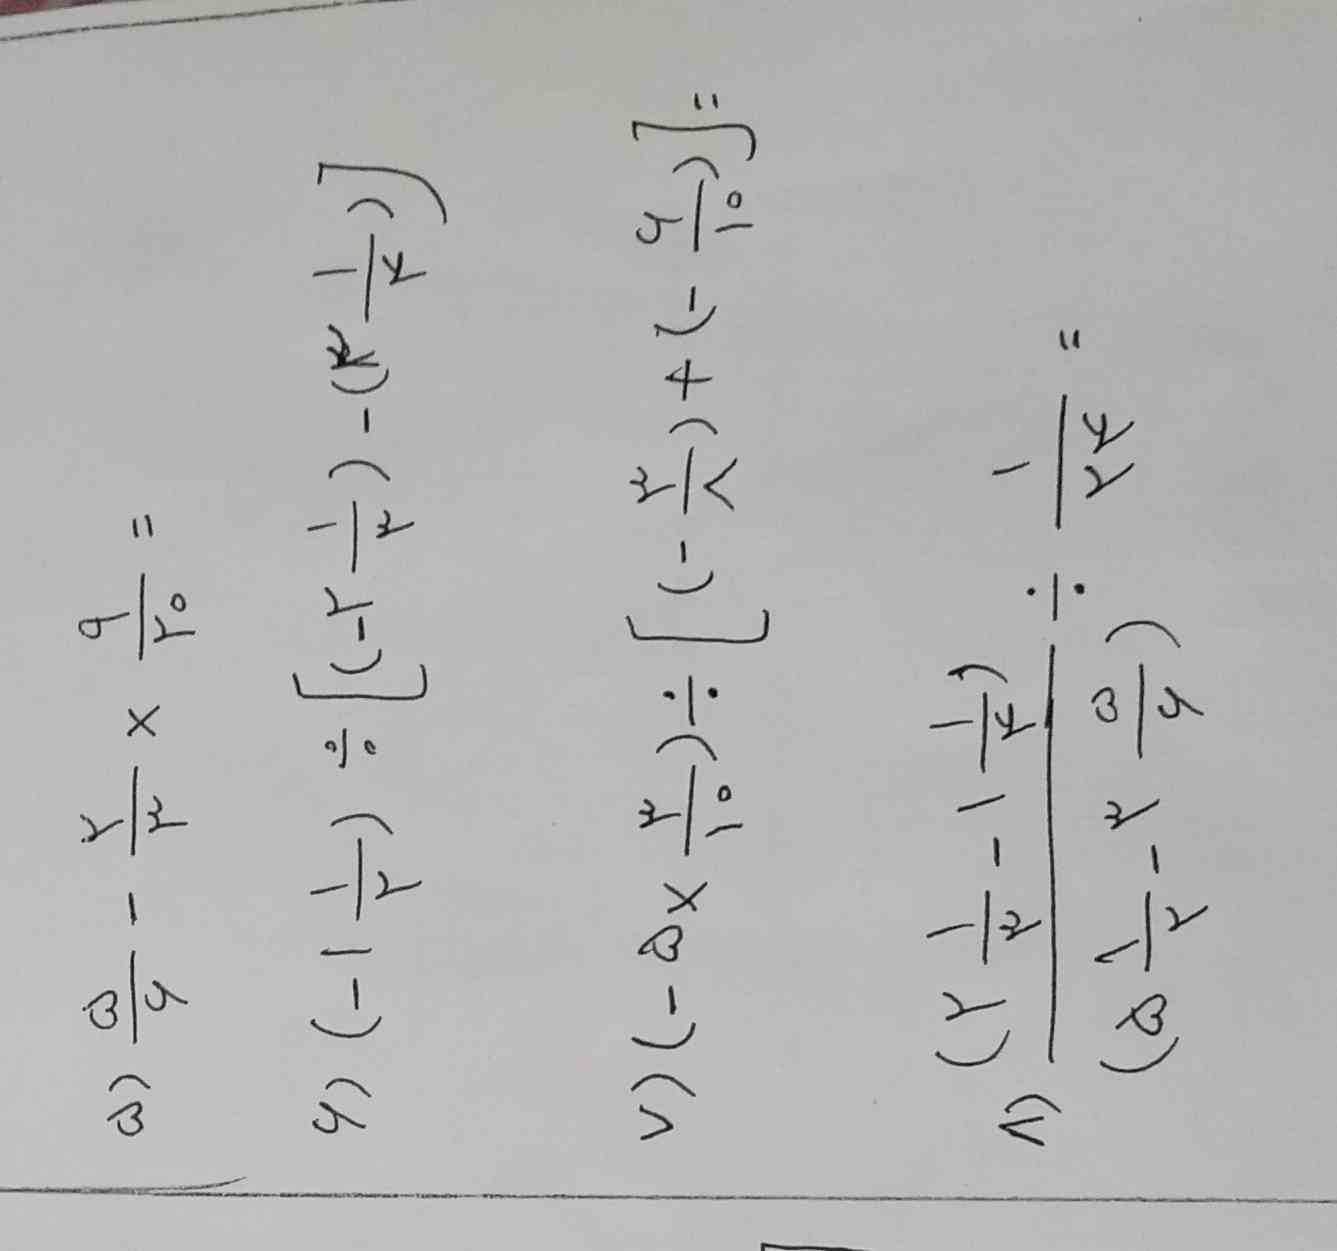 ۵) ۵/۶ - ۲/۳ × ۹/۲۰ =
۶) (-۱ ۱/۲) ÷ [(-۲ ۱/۳) - ( ۱/۴)]
۷) (-۵ × ۳/۱۰) ÷ [(-۳/۸) + (-۶/۱۰)] =
۸) (۲ ۱/۳ - ۱ ۱/۴) / (۵ ۱/۲ - ۳ ۵/۶) ÷ ۱/۲۴ =